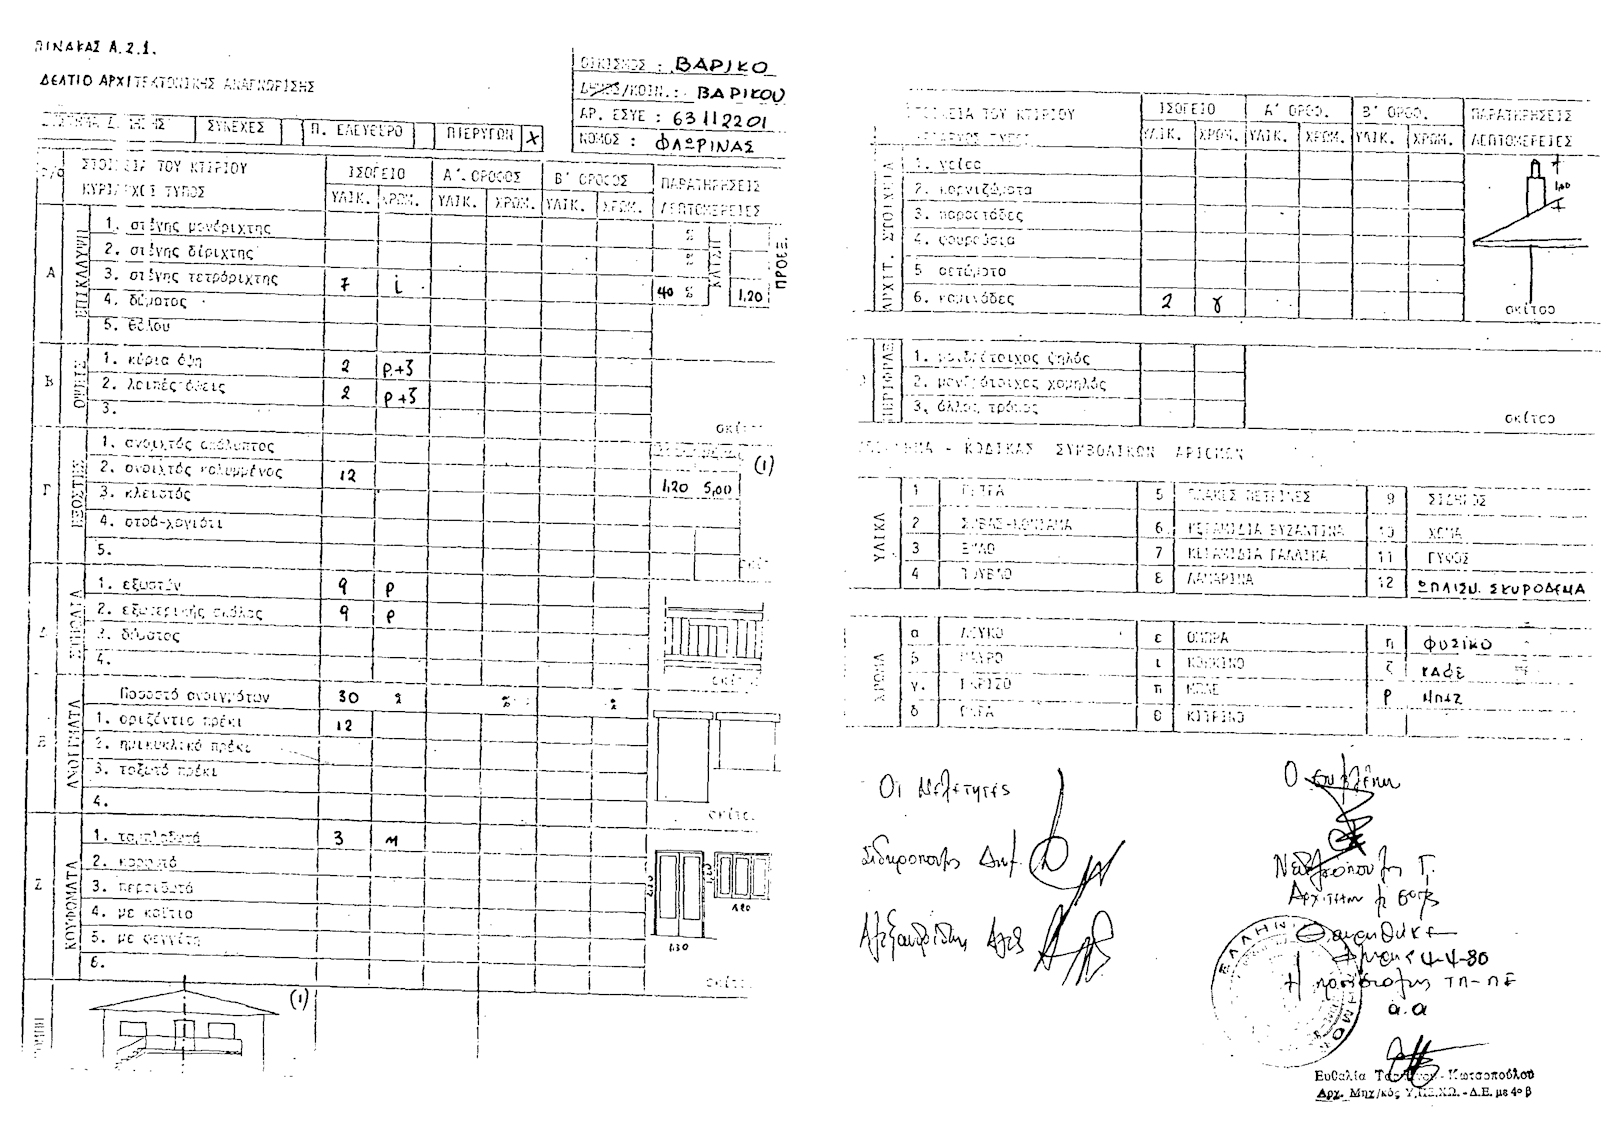 ΠΙΝΑΚΑΣ Α.2.1.
ΔΕΛΤΙΟ ΑΡΧΙΤΕΚΤΟΝΙΚΗΣ ΑΝΑΓΝΩΡΙΣΗΣ
ΟΙΚΙΣΜΟΣ : ΒΑΡΙΚΟ
ΔΗΜΟΣ/ΚΟΙΝ.: ΒΑΡΙΚΟΥ
ΑΡ. ΕΣΥΕ : 63112201
ΝΟΜΟΣ : ΦΛΩΡΙΝΑΣ
ΣΥΝΕΧΕΣ Π. ΕΛΕΥΘΕΡΟ ΠΤΕΡΥΓΩΝ X
ΣΤΟΙΧΕΙΑ ΤΟΥ ΚΤΙΡΙΟΥ ΙΣΟΓΕΙΟ Α'. ΟΡΟΦΟΣ Β' ΟΡΟΦΟΣ ΠΑΡΑΤΗΡΗΣΕΙΣ
ΚΥΡΙΑΡΧΟΣ ΤΥΠΟΣ ΥΛΙΚ. ΧΡΩΜ. ΥΛΙΚ. ΧΡΩΜ. ΥΛΙΚ. ΧΡΩΜ. ΛΕΠΤΟΜΕΡΕΙΕΣ
Α ΕΠΙΚΑΛΥΨΗ
1. στέγης μονόριχτης
2. στέγης δίριχτης
3. στέγης τετράριχτης 7 ι 40 % 1,20
4. δώματος
5. θόλου
ΚΛΙΣΗ ΠΡΟΕΞ.
Β ΟΨΕΙΣ
1. κύρια όψη 2 ρ+ζ
2. λοιπές όψεις 2 ρ+ζ
3.
σκίτσο
Γ ΕΞΩΣΤΗΣ
1. ανοιχτός ακάλυπτος
2. ανοιχτός καλυμμένος 12 1,20 5,00 (1)
3. κλειστός
4. στοά-χαγιάτι
5.
1. εξωστών 9 ρ
2. εξωτερικής σκάλας 9 ρ
3. δώματος
4.
ΑΝΟΙΓΜΑΤΑ
Ποσοστό ανοιγμάτων 30 % % %
1. οριζόντιο πρέκι 12
2. ημικυκλικό πρέκι
3. τοξωτό πρέκι
4.
Ζ ΚΟΥΦΩΜΑΤΑ
1. ταμπλαδωτά 3 η
2. καρφωτά
3. περσιδωτά
4. με καΐτια
5. με φεγγίτη
6.
1.30
1.20
(1)
ΣΤΟΙΧΕΙΑ ΤΟΥ ΚΤΙΡΙΟΥ ΙΣΟΓΕΙΟ Α' ΟΡΟΦ. Β' ΟΡΟΦ. ΠΑΡΑΤΗΡΗΣΕΙΣ
ΥΛΙΚ. ΧΡΩΜ. ΥΛΙΚ. ΧΡΩΜ. ΥΛΙΚ. ΧΡΩΜ. ΛΕΠΤΟΜΕΡΕΙΕΣ
ΑΡΧΙΤ. ΣΤΟΙΧΕΙΑ
1. γείσα
2. κορνιζώματα
3. παραστάδες
4. φουρούσια
5 αετώματα
6. καμινάδες 2 γ
1,00
σκίτσο
1. μανδρότοιχος ψηλός
2. μανδρότοιχος χαμηλός
3. άλλος τρόπος
σκίτσο
ΚΩΔΙΚΑΣ ΣΥΜΒΟΛΙΚΩΝ ΑΡΙΘΜΩΝ
ΥΛΙΚΑ
1 ΠΕΤΡΑ 5 ΠΛΑΚΕΣ ΠΕΤΡΙΝΕΣ 9 ΣΙΔΗΡΟΣ
2 ΣΟΒΑΣ-ΚΟΝΙΑΜΑ 6 ΚΕΡΑΜΙΔΙΑ ΒΥΖΑΝΤΙΝΑ 10 ΧΩΜΑ
3 ΞΥΛΟ 7 ΚΕΡΑΜΙΔΙΑ ΓΑΛΛΙΚΑ 11 ΓΥΨΟΣ
4 ΤΟΥΒΛΟ 8 ΛΑΜΑΡΙΝΑ 12 ΩΠΛΙΣΜ. ΣΚΥΡΟΔΕΜΑ
ΧΡΩΜΑ
α ΛΕΥΚΟ ε ΩΧΡΑ η ΦΥΣΙΚΟ
β ΜΑΥΡΟ ι ΚΟΚΚΙΝΟ ζ ΚΑΦΕ
γ. ΓΚΡΙΖΟ π ΜΠΛΕ ρ ΜΠΕΖ
δ θ ΚΙΤΡΙΝΟ
Οι Μελετητές
Ο επιβλέπων
Αρχιτέκτων
4-4-80
α.α
ΕΛΛΗΝ
Ευθαλία Κωτσοπούλου
Αρχ. Μηχ/κός Υ.ΠΕ.ΧΩ.-Δ.Ε. με 4° β